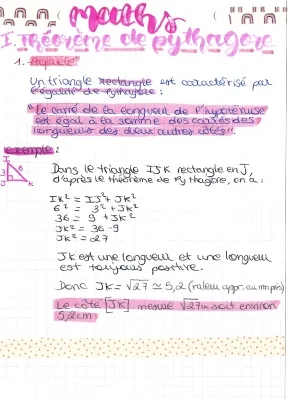 maths
I. Théorème de pythagore
1. Propriété
Un triangle rectangle est caractérisé par
l'égalité de Pythagore :
"Le carré de la longueur de l'hypoténuse
est égal à la somme des carrés des
longueurs des deux autres côtés".
exemple:
I
3
6
J K
Dans le triangle IJK rectangle en J,
d'après le théorème de Pythagore, on a :
IK² = IJ² + JK²
6² = 3² + JK²
36 = 9 + JK²
JK² = 36 - 9
JK² = 27
JK est une longueur et une longueur
est toujours positive.
Donc JK = √27 ≃ 5,2 (valeur appr. au mm près)
Le côté [JK] mesure √27cm soit environ
5,2cm